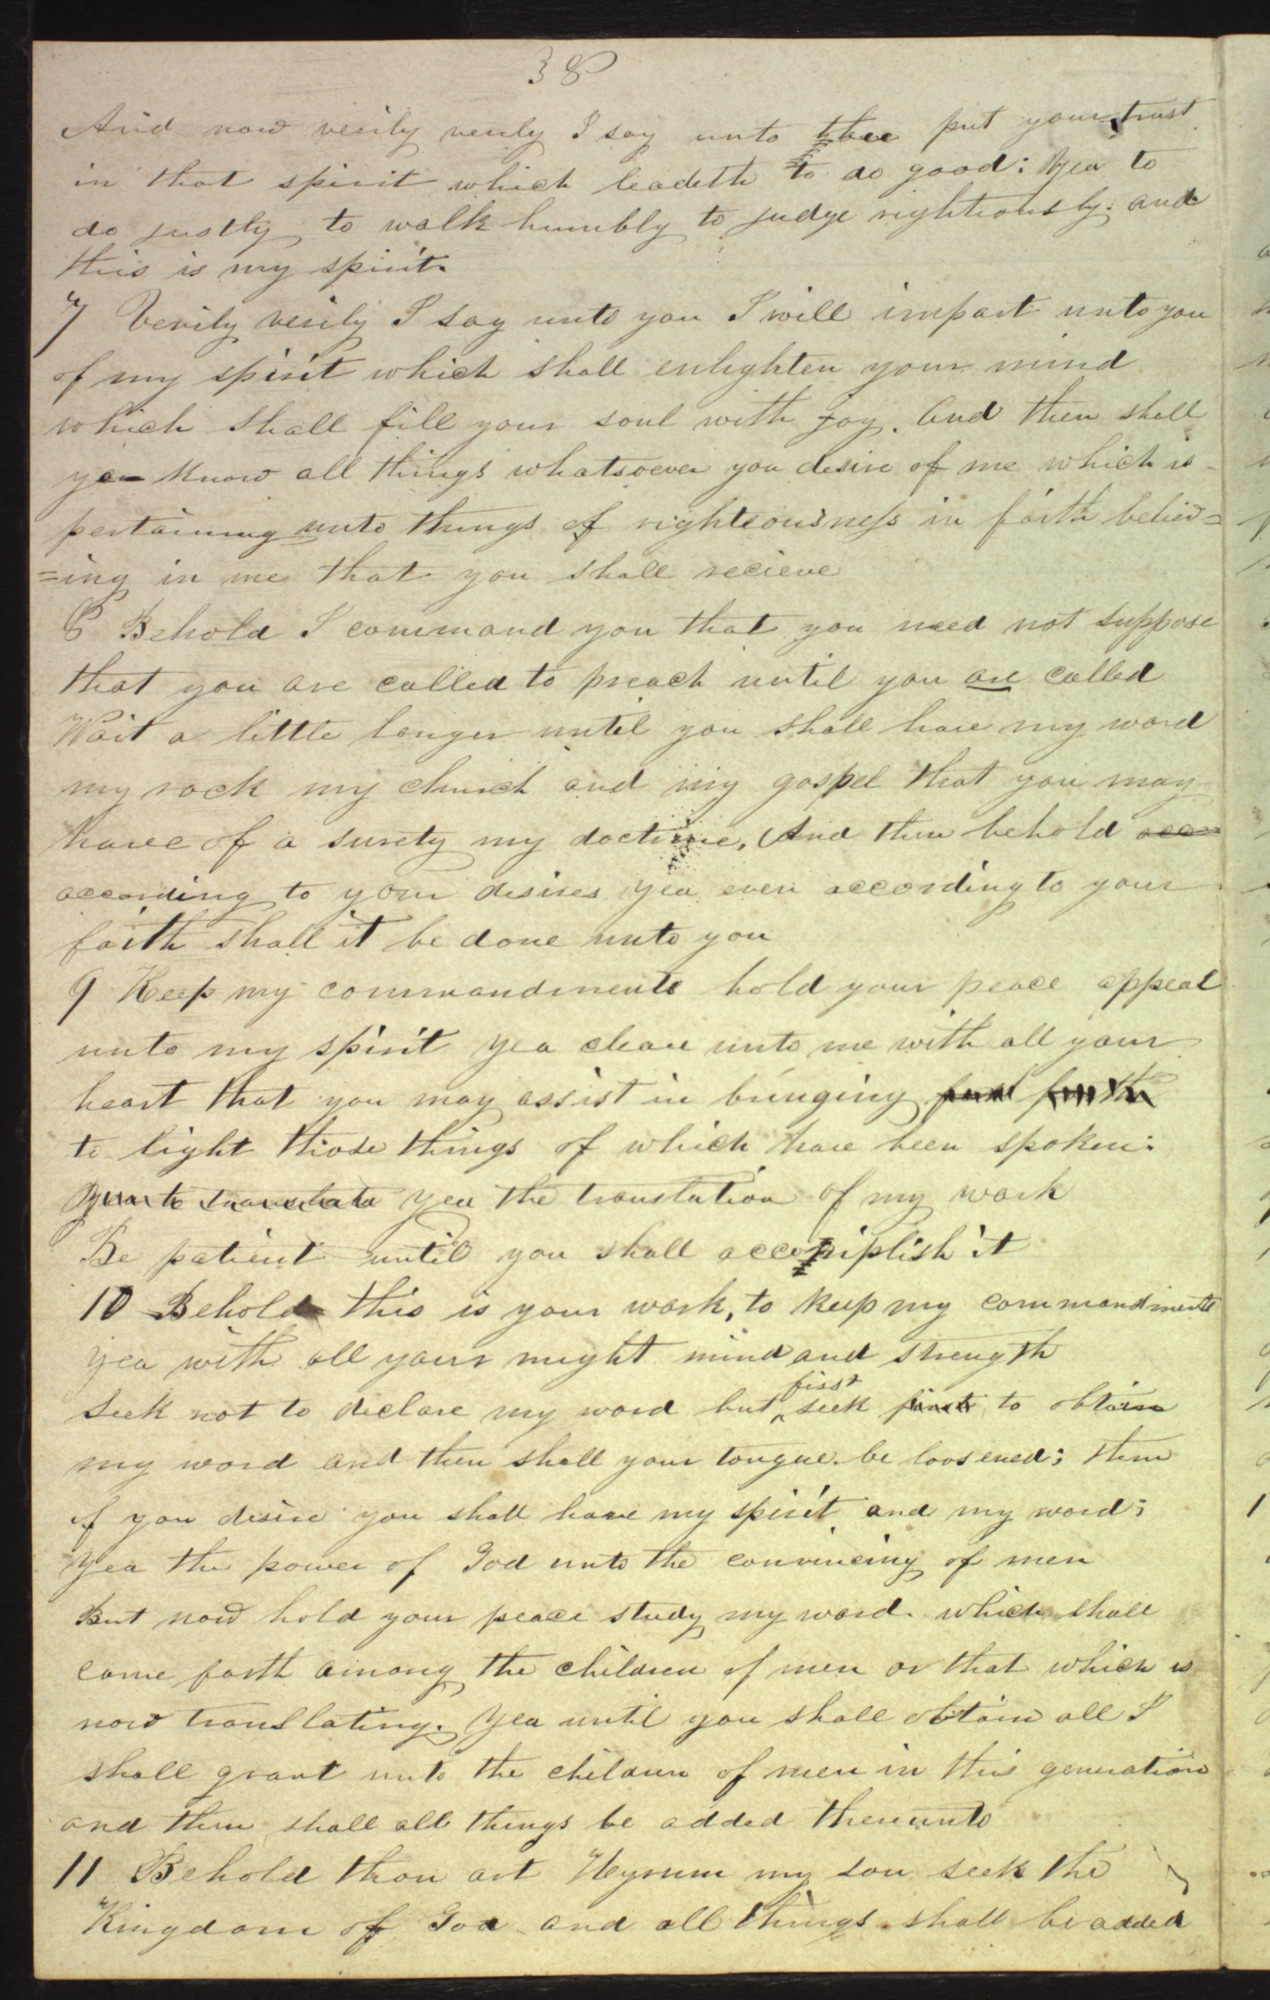 38
And now verily verily I say unto thee put your trust
in that spirit which leadeth to do good: Yea to
do justly to walk humbly to judge rightiously; and
this is my spirit.
7 Verily verily I say unto you I will impart unto you
of my spirit which shall enlighten your mind
which shall fill your soul with joy. And then shall
you know all things whatsoever you desire of me which is
pertaining unto things of righteousness in faith believ=
=ing in me that you shall recieve
8 Behold I command you that you need not suppose
that you are called to preach until you are called
Wait a little longer until you shall have my word
my rock my church and my gospel that you may
have of a surety my doctrine, And then behold acc
according to your desires yea even according to your
faith shall it be done unto you
9 Keep my commandments hold your peace appeal
unto my spirit yea cleave unto me with all your
heart that you may assist in bringing forth
to light those things of which have been spoken:
Yea to translate yea the translation of my work
Be patient until you shall accomplish it
10 Behold this is your work, to keep my commandments
yea with all your might mind and strength
Seek not to declare my word but first seek first to obtain
my word and then shall your tongue be loosened; then
if you desire you shall have my spirit and my word;
Yea the power of God unto the convincing of men
But now hold your peace study my word which shall
come forth among the children of men or that which is
now translating. Yea until you shall obtain all I
shall grant unto the children of men in this generation
and then shall all things be added thereunto
11 Behold thou art Hyrum my son seek the
Kingdom of God and all things shall be added